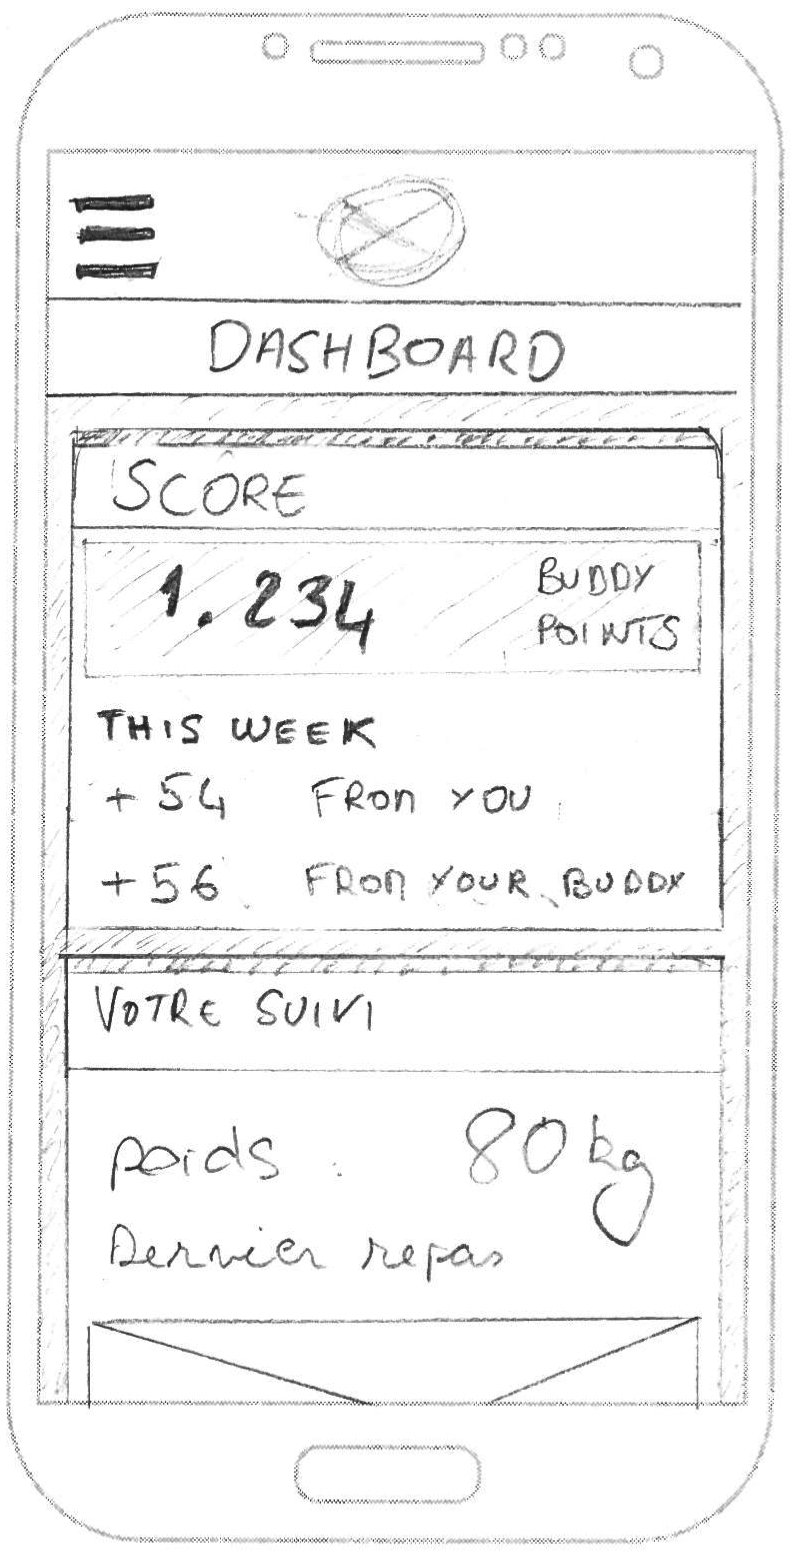 DASHBOARD
SCORE
1.234 BUDDY POINTS
THIS WEEK
+54 FROM YOU
+56 FROM YOUR BUDDY
VOTRE SUIVI
poids : 80kg
Dernier repas